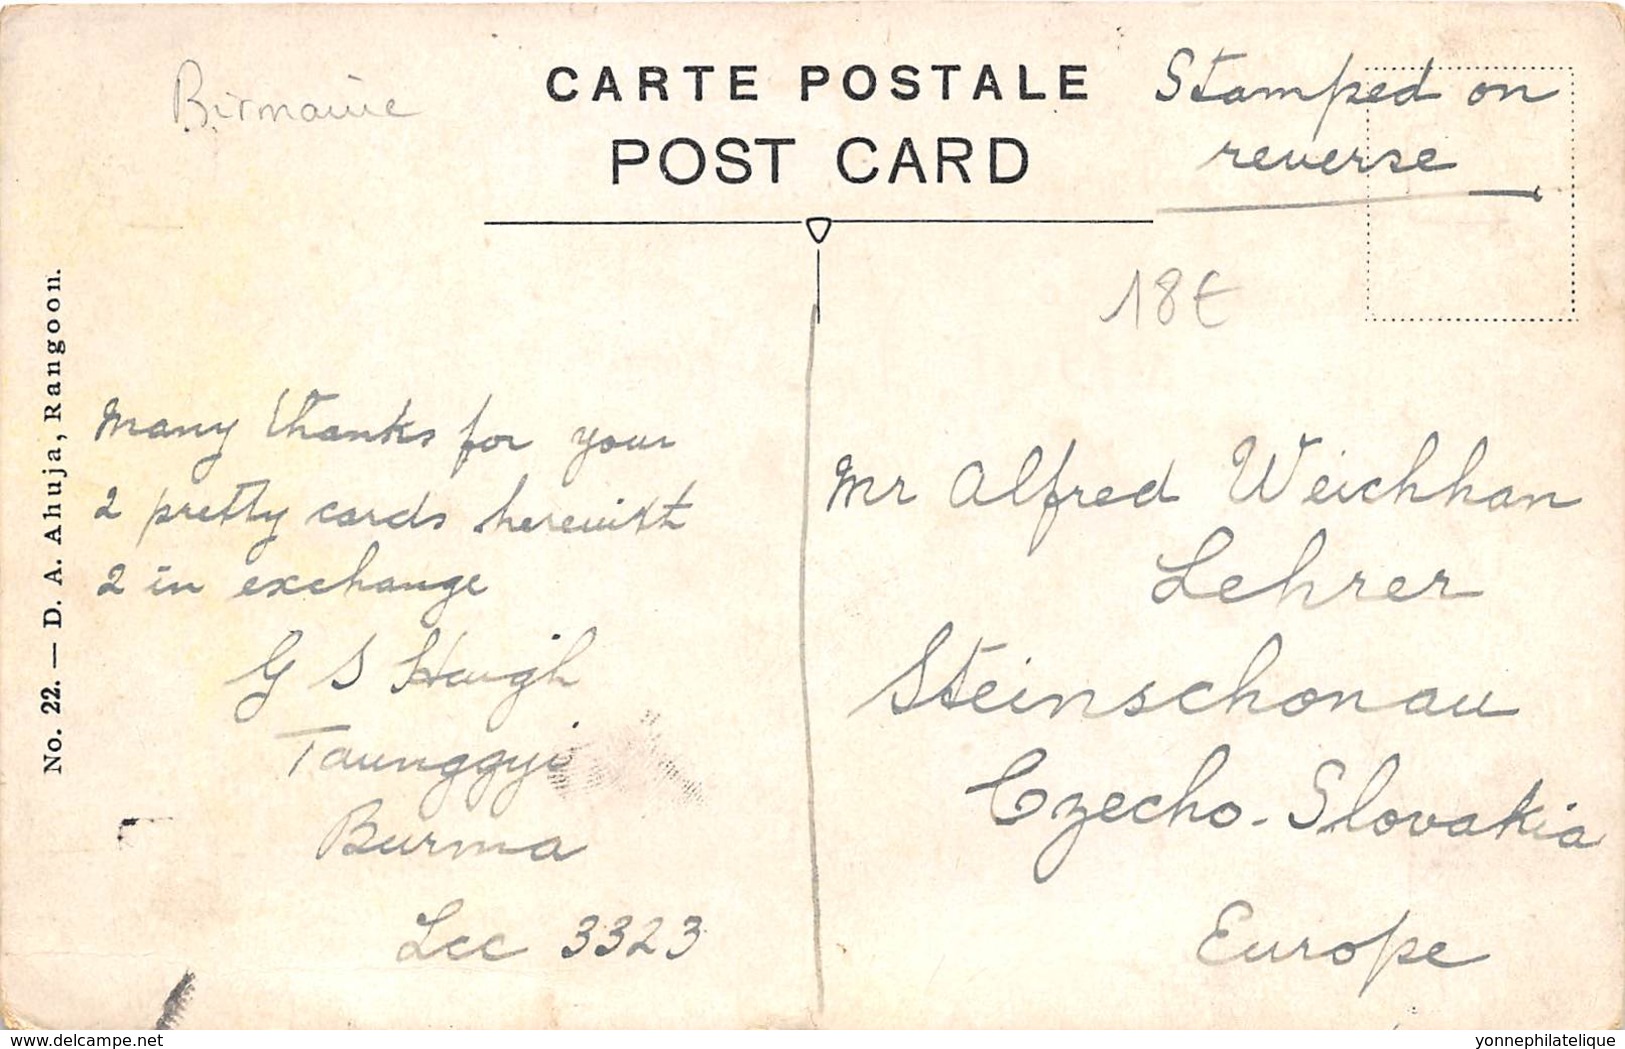 Birmanie
CARTE POSTALE
POST CARD
Stamped on
reverse
18€
No. 22. — D. A. Ahuja, Rangoon.
Many thanks for your
2 pretty cards herewith
2 in exchange
G S Haugh
Taunggyi
Burma
Lcc 3323
Mr Alfred Weichhan
Lehrer
Steinschonau
Czecho-Slovakia
Europe
delcampe.net
yonnephilatelique